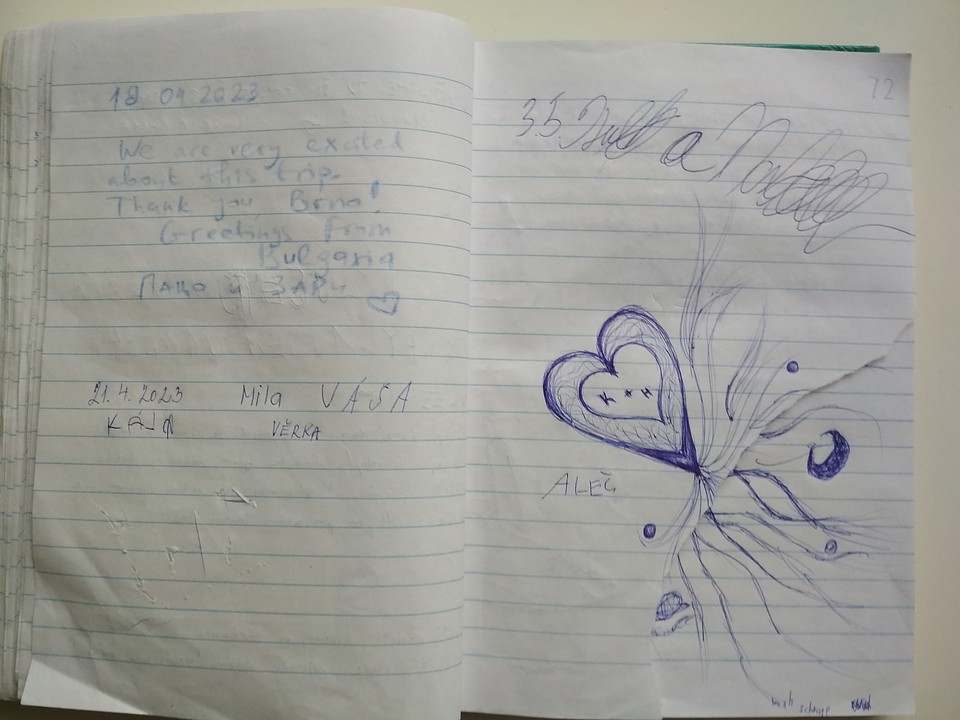 18 04 2023
We are very excited
about this trip.
Thank you, Brno!
Greetings from
Bulgaria
21. 4. 2023 Mila VÁŠA
VĚRKA
72
3.5. a
K + H
ALEČ